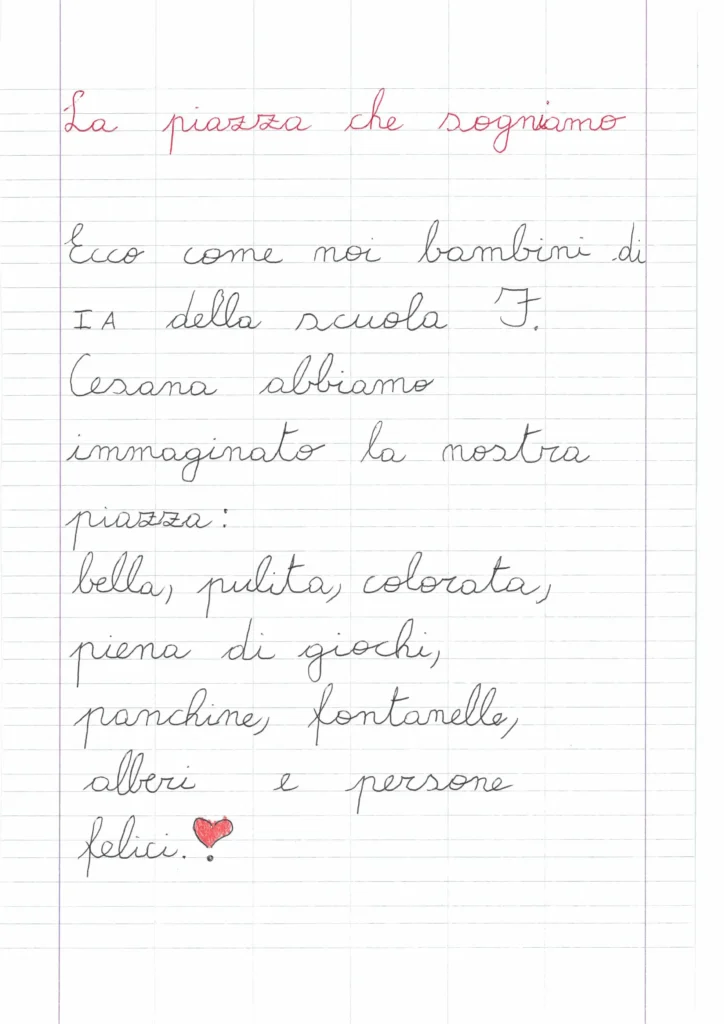 La piazza che sogniamo
Ecco come noi bambini di
I A della scuola F.
Cesana abbiamo
immaginato la nostra
piazza:
bella, pulita, colorata,
piena di giochi,
panchine, fontanelle,
alberi e persone
felici.